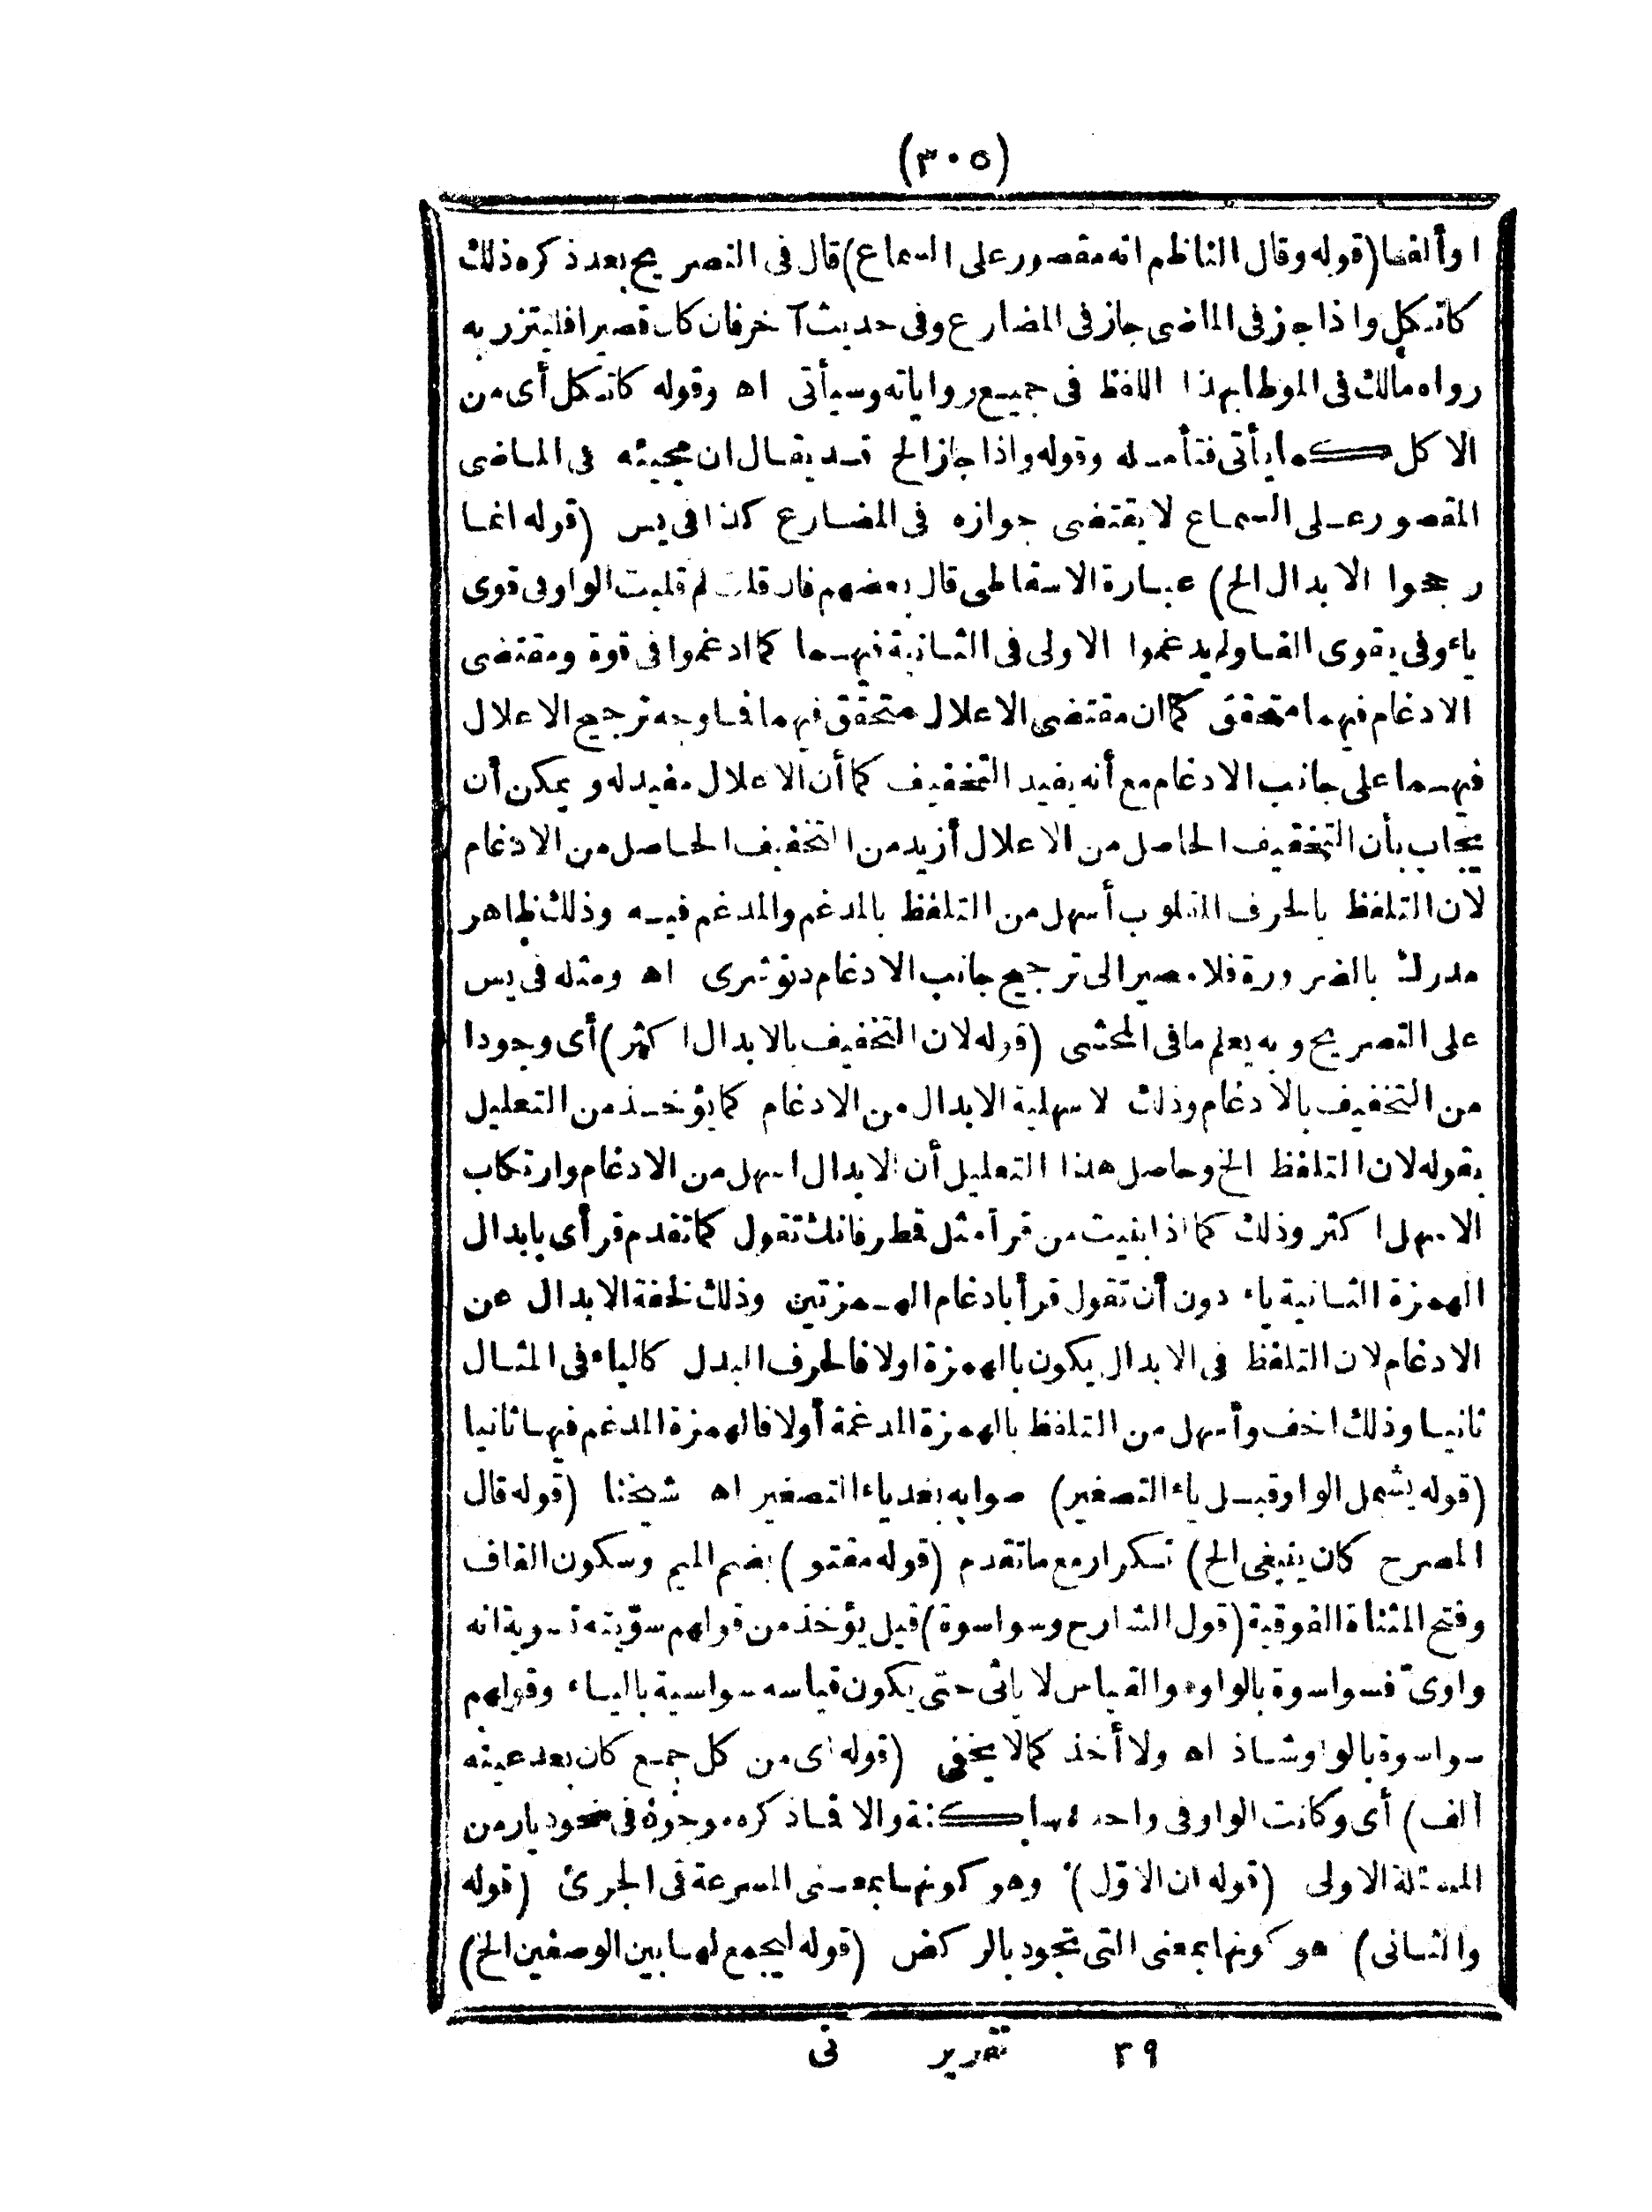 (٣٠٥)
او ألفا (قوله وقال الناظم انه مقصور على السماع) قال فى التصريح بعد ذكره ذلك
كاتكل واذا جاز فى الماضى جاز فى المضارع وفى حديث آخر فان كان قصيرا فليتزر به
رواه مالك فى الموطا بهذا اللفظ فى جميع رواياته وسيأتى اه وقوله كاتكل أى من
الاكل كما يأتى فتأمله وقوله واذا جاز الخ قد يقال ان مجيئه فى الماضى
المقصور على السماع لا يقتضى جوازه فى المضارع كذا فى يس (قوله انما
رجحوا الابدال الخ) عبارة الاسقاطى قال بعضهم فان قلت لم قلبت الواو فى قوى
ياء وفى يقوى الفا ولم يدغموا الاولى فى الثانية فيهما كما ادغموا فى قوة ومقتضى
الادغام فيهما متحقق كما ان مقتضى الاعلال متحقق فيهما فما وجه ترجيح الاعلال
فيهما على جانب الادغام مع أنه يفيد التخفيف كما أن الاعلال مفيد له ويمكن أن
يجاب بأن التخفيف الحاصل من الاعلال أزيد من التخفيف الحاصل من الادغام
لان التلفظ بالحرف المقلوب أسهل من التلفظ بالمدغم والمدغم فيه وذلك ظاهر
مدرك بالضرورة فلا مصير الى ترجيح جانب الادغام دنوشرى اه ومثله فى يس
على التصريح وبه يعلم ما فى المحشى (قوله لان التخفيف بالابدال اكثر) أى وجودا
من التخفيف بالادغام وذلك لاسهلية الابدال من الادغام كما يؤخذ من التعليل
بقوله لان التلفظ الخ وحاصل هذا التعليل أن الابدال اسهل من الادغام وارتكاب
الاسهل اكثر وذلك كما اذا بنيت من قرأ مثل قطر فانك تقول كما تقدم قرأى بابدال
الهمزة الثانية ياء دون أن تقول قرأ بادغام الهمزتين وذلك لخفة الابدال عن
الادغام لان التلفظ فى الابدال يكون بالهمزة اولا فالحرف البدل كالياء فى المثال
ثانيا وذلك اخف وأسهل من التلفظ بالهمزة المدغمة أولا فالهمزة المدغم فيها ثانيا
(قوله يشمل الواو قبل ياء التصغير) صوابه بعد ياء التصغير اه شيخنا (قوله قال
المصرح كان ينبغى الخ) تكرار مع ما تقدم (قوله مقتو) بضم الميم وسكون القاف
وفتح المثناة الفوقية (قول الشارح وسواسوة) قيل يؤخذ من قولهم سوّيته تسوية انه
واوىّ فسواسوة بالواو هو القياس لا يائى حتى يكون قياسه سواسية بالياء وقولهم
سواسوة بالواو شاذ اه ولا أخذ كما لا يخفى (قوله اى من كل جمع كان بعد عينه
ألف) أى وكانت الواو فى واحده ساكنة والا فما ذكره موجود فى نحو ديار من
المسئلة الاولى (قوله ان الاوّل) وهو كونها بمعنى المسرعة فى الجرى (قوله
والثانى) هو كونها بمعنى التى تجود بالركض (قوله ليجمع لها بين الوصفين الخ)
٣٩ تقرير نى